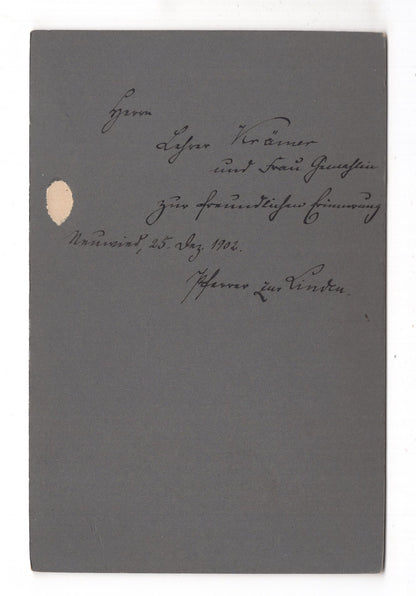 Herrn
Lehrer Krämer
und Frau Gemahlin
zur freundlichen Erinnerung
Neuwied, 25. Dez. 1902.
Pfarrer zur Linden.